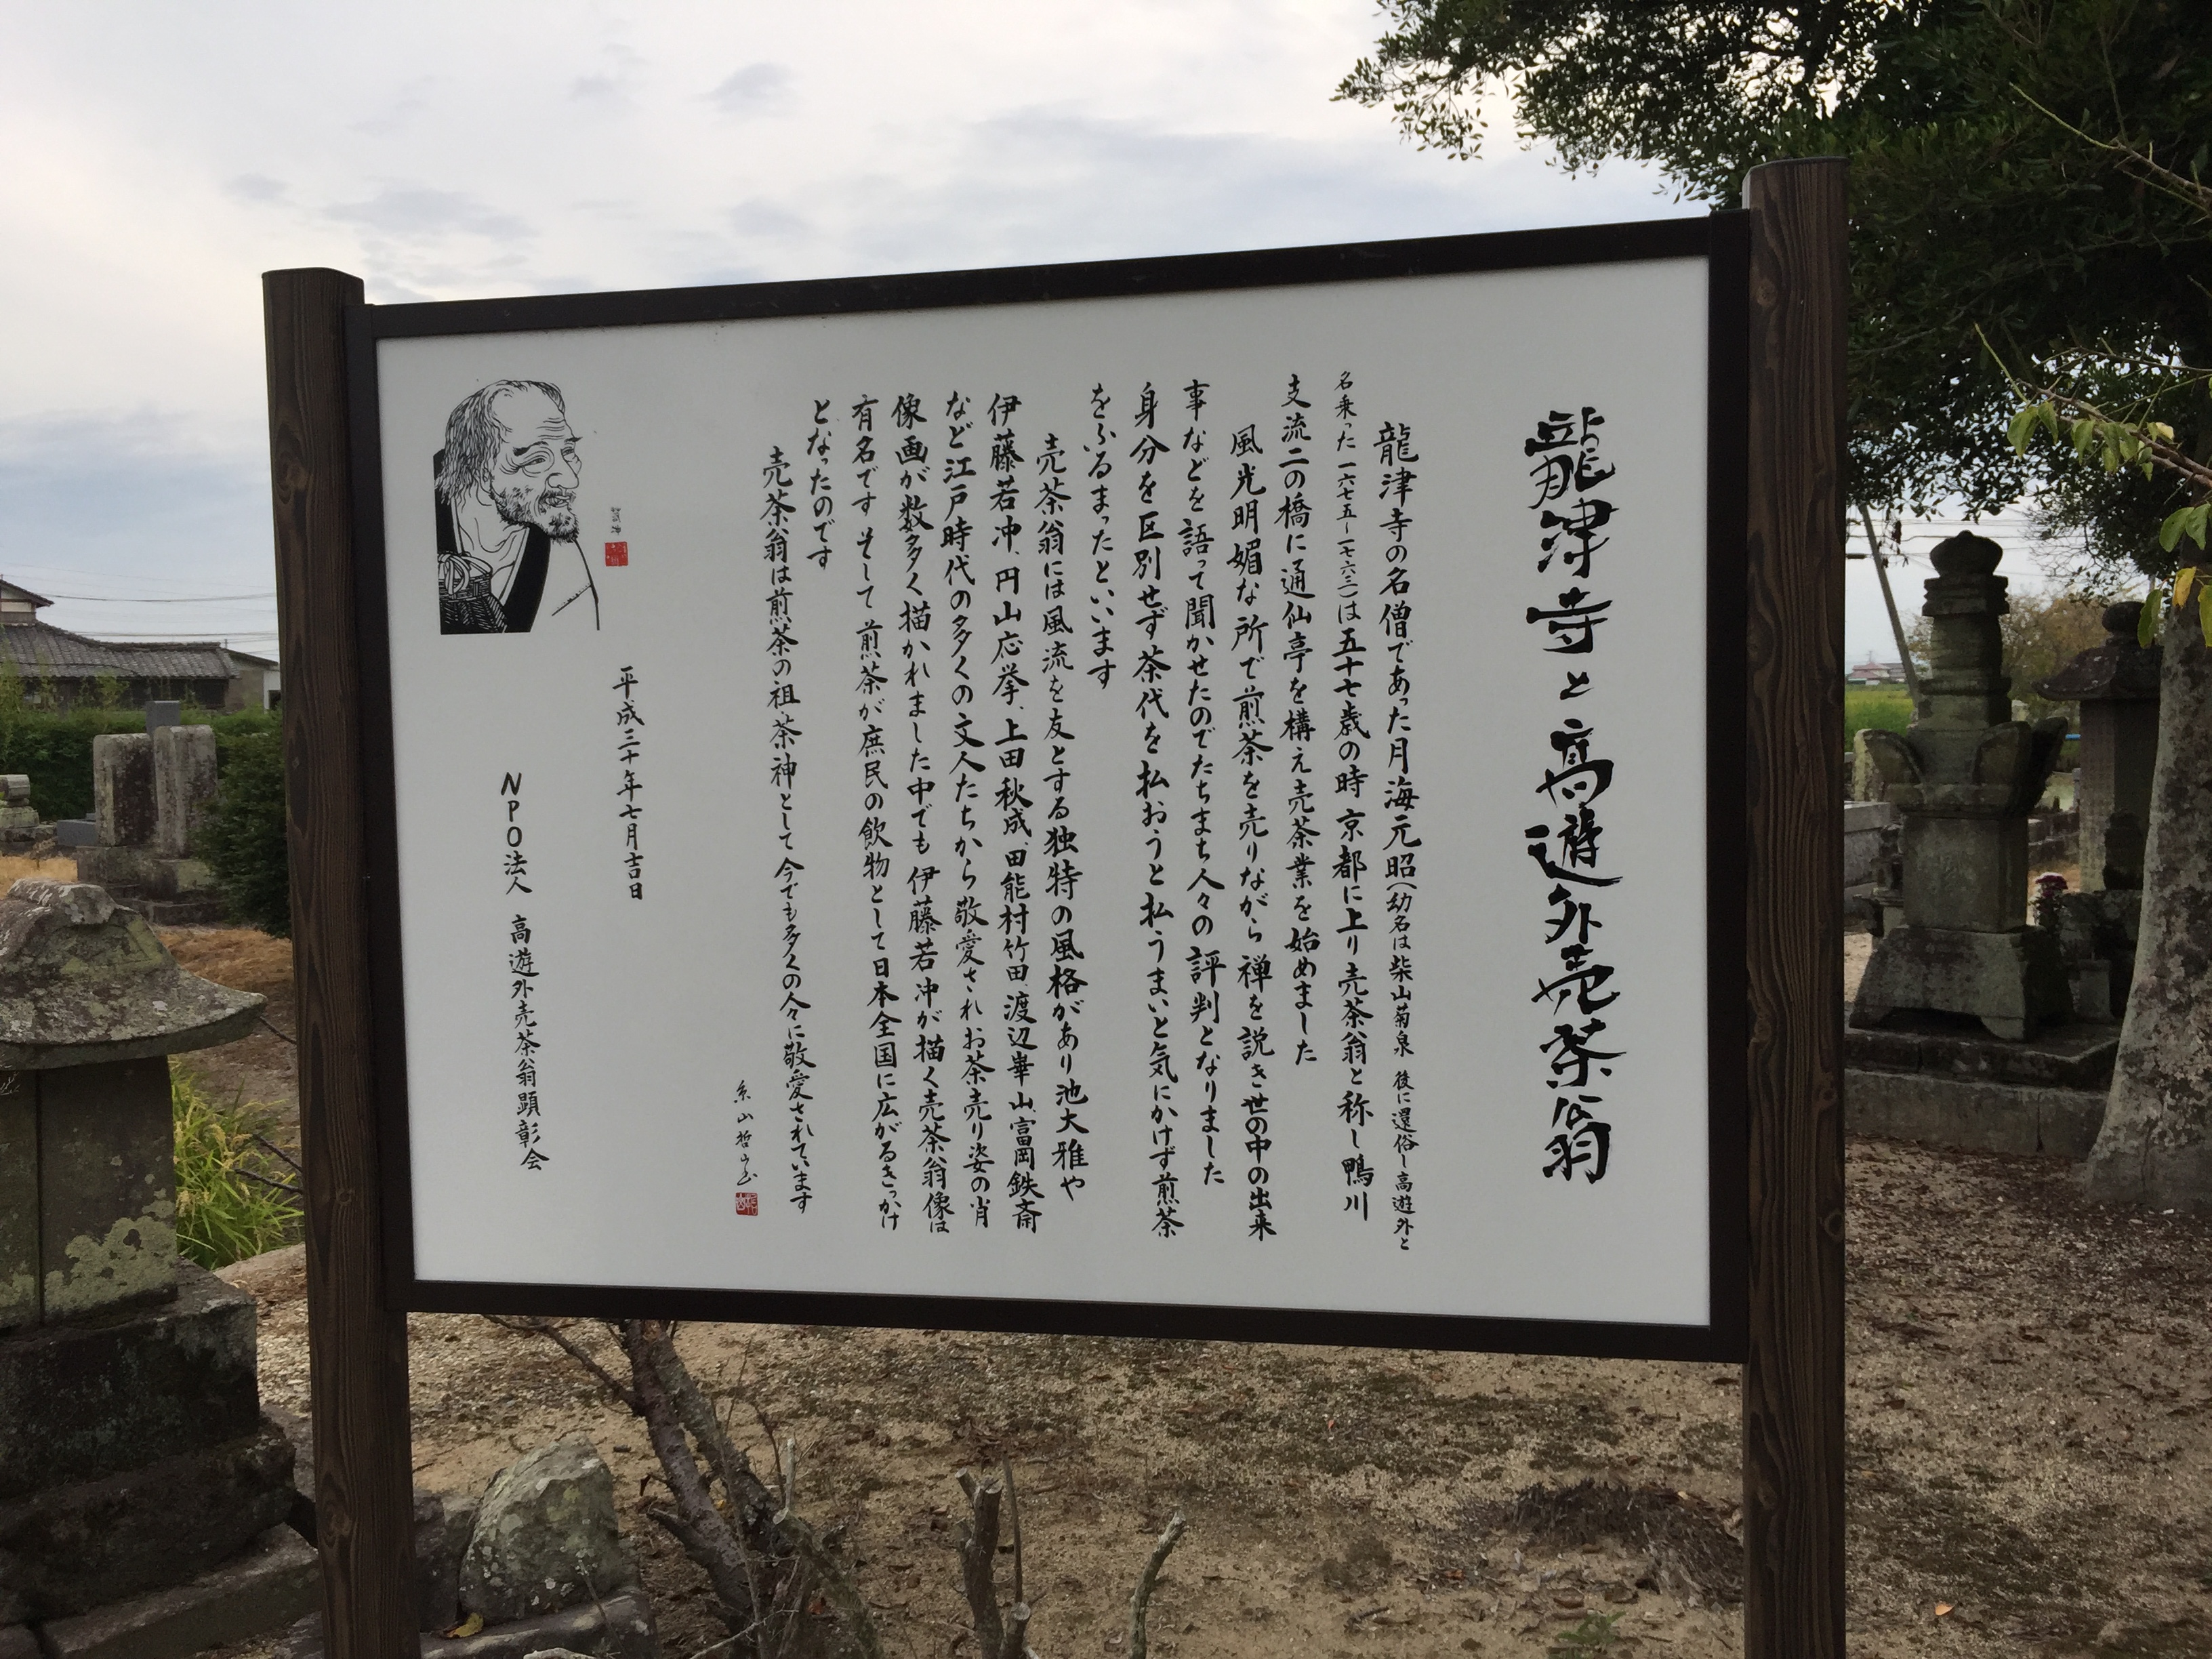 龍津寺と高遊外売茶翁
龍津寺の名僧であった月海元昭(幼名は柴山菊泉 後に還俗し高遊外と
名乗った 一六七五〜一七六三)は五十七歳の時 京都に上り売茶翁と称し鴨川
支流二の橋に通仙亭を構え売茶業を始めました
風光明媚な所で煎茶を売りながら禅を説き世の中の出来
事などを語って聞かせたのでたちまち人々の評判となりました
身分を区別せず茶代を払おうと払うまいと気にかけず煎茶
をふるまったといいます
売茶翁には風流を友とする独特の風格があり池大雅や
伊藤若冲、円山応挙、上田秋成、田能村竹田、渡辺崋山、富岡鉄斎
など江戸時代の多くの文人たちから敬愛されお茶売り姿の肖
像画が数多く描かれました中でも伊藤若冲が描く売茶翁像は
有名です そして煎茶が庶民の飲物として日本全国に広がるきっかけ
となったのです
売茶翁は煎茶の祖、茶神として今でも多くの人々に敬愛されています
糸山哲山書
平成三十年七月吉日
NPO法人 高遊外売茶翁顕彰会